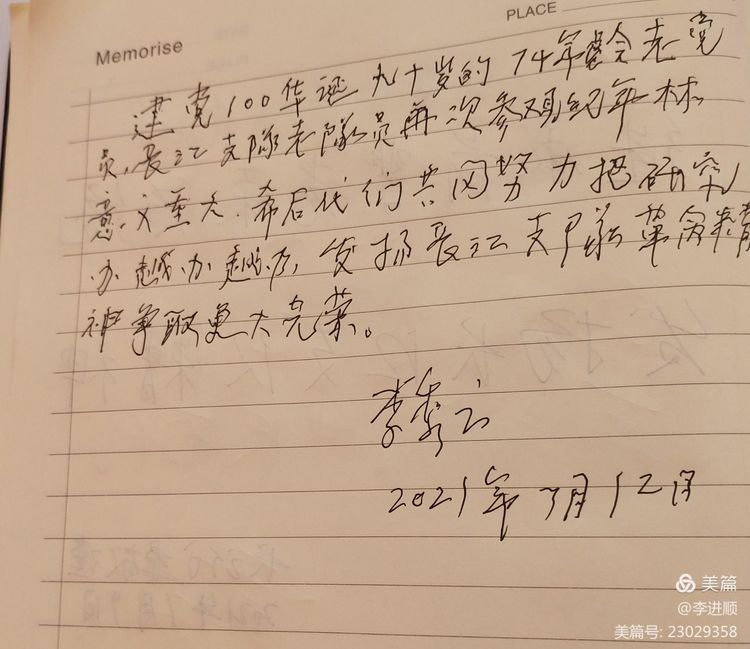 PLACE
Memorise
建党100华诞 九十岁的74年龄会老党
员,长江支队老队员再次参观纪年林
意义重大.希后代们共同努力把研究
办越办越好,发扬长江支队革命精
神争取更大光荣。
李秀云
2021年7月12日
美篇
@李进顺
美篇号: 23029358